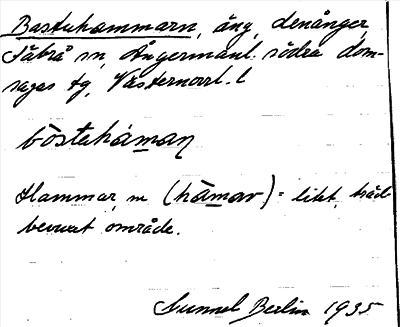 Bastuhammarn, äng, denånger,
Säbrå sn, Ångermanl. södra dom-
sagas tg, Västernorrl. l
bòstuhámaṉ
Hammar, m (hàmar) = litet, träd-
bevuxet område.
Gunnel Berlin 1935